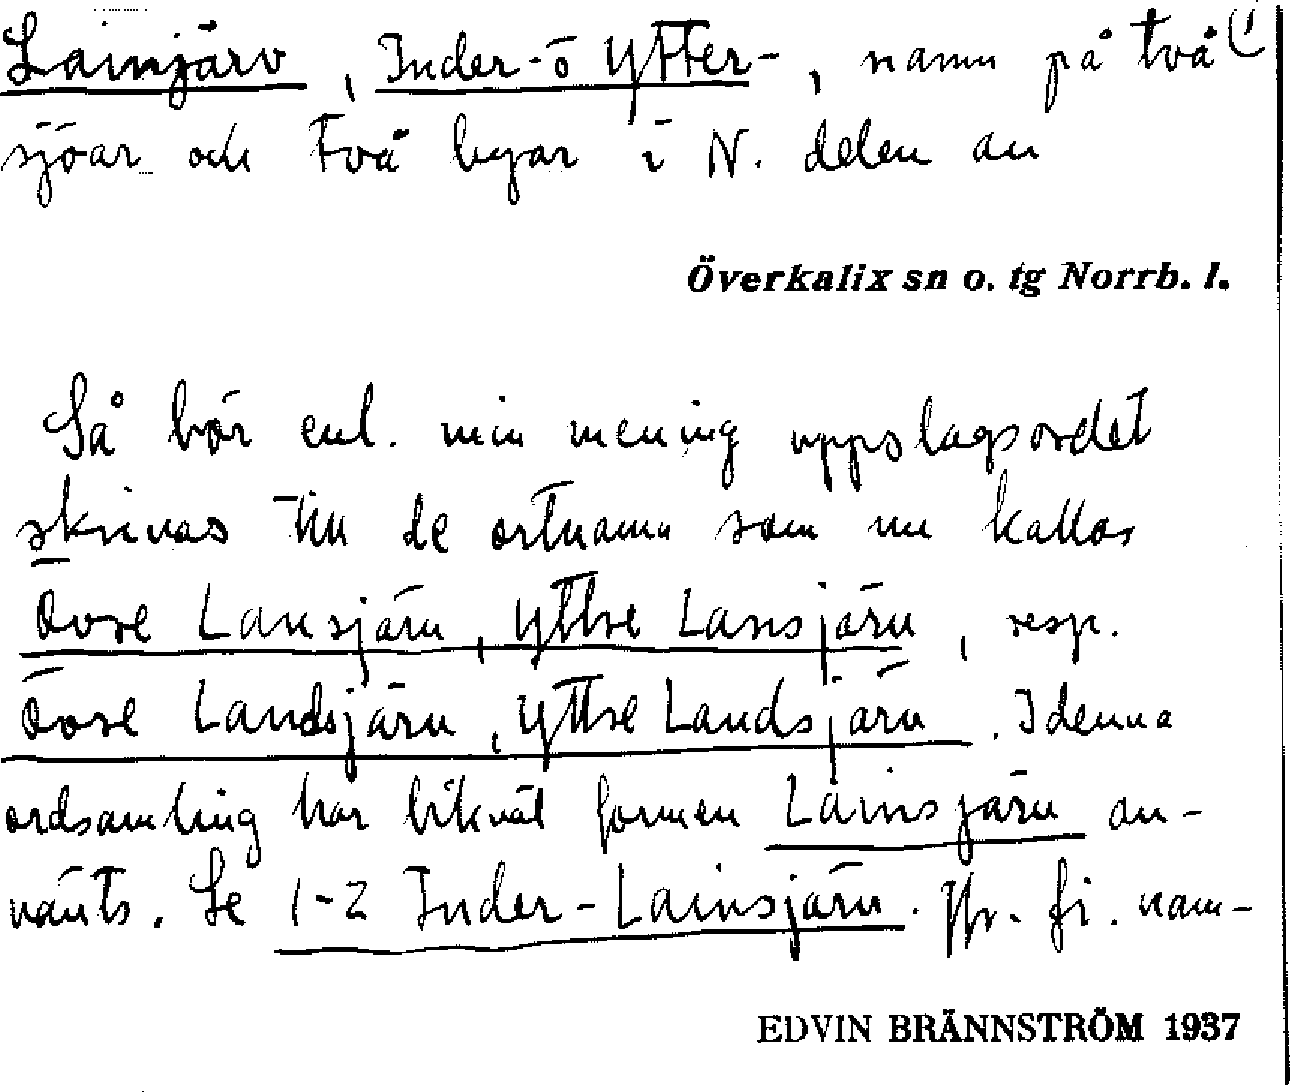 Lainjärv, Inder- o Ytter-, namn på två (1
sjöar och två byar i N. delen av
Överkalix sn o. tg Norrb. l.
Så bör enl. min mening uppslagsordet
skrivas till de ortnamn som nu kallas
Övre Lansjärv, Yttre Lansjärv, resp.
Övre Landsjärv, Yttre Landsjärv. I denna
ordsamling har likväl formen Lainsjärv an-
vänts. Se 1-2 Inder-Lainsjärv. Jfr. fi. nam-
EDVIN BRÄNNSTRÖM 1937